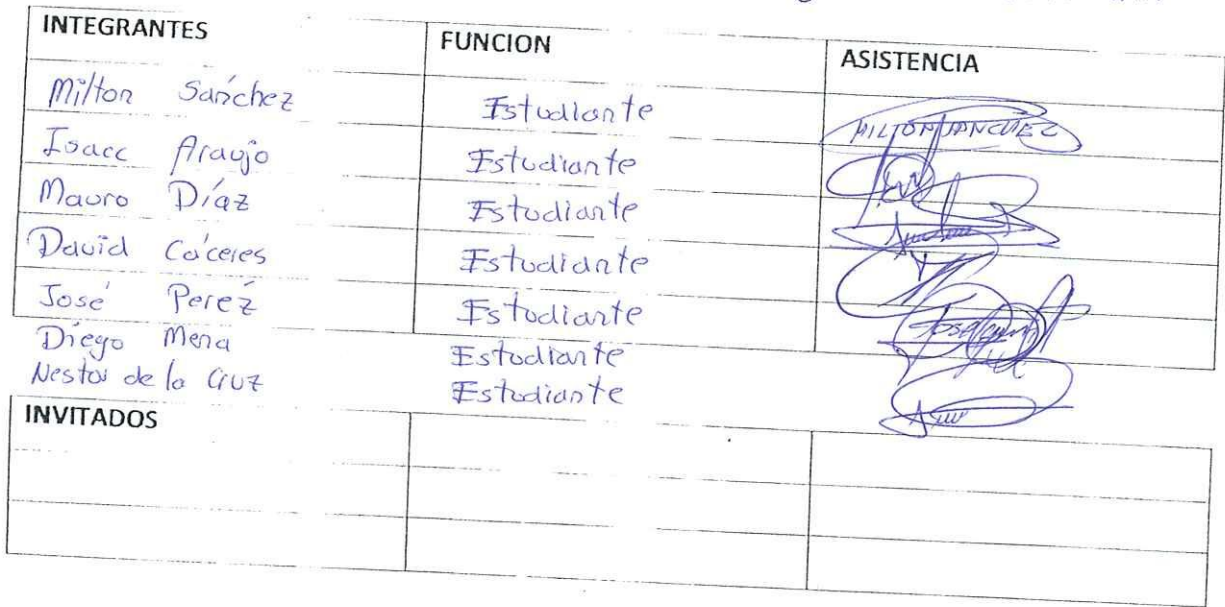 INTEGRANTES FUNCION ASISTENCIA
Milton Sánchez Estudiante MILTON SANCHEZ
Isacc Araujo Estudiante
Mauro Díaz Estudiante
David Cáceres Estudiante
José Peréz Estudiante
Diego Mena Estudiante
Nestor de la Cruz Estudiante
INVITADOS